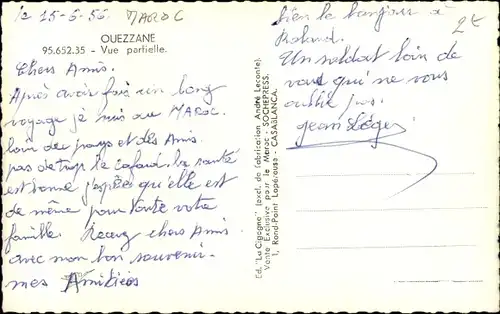 le 15-5-56. MAROC
OUEZZANE
95.652.35 - Vue partielle.
Chers Amis.
Après avoir fais un long
voyage je suis au MAROC.
loin du pays et des Amis.
pas de trop le cafard. la santé
est bonne j'espère qu'elle est
de même pour toute votre
famille. Recevez chers Amis
avec mon bon souvenir.
mes Amitiées
Ed. "La Cigogne" (excl. de fabrication André Leconte).
Vente Exclusive pour le Maroc - SOCHEPRESS.
1, Rond-Point Lapérouse - CASABLANCA.
bien le bonjour à
Roland.
Un soldat loin de
vous qui ne vous
oublie pas.
Jean Léger
2€